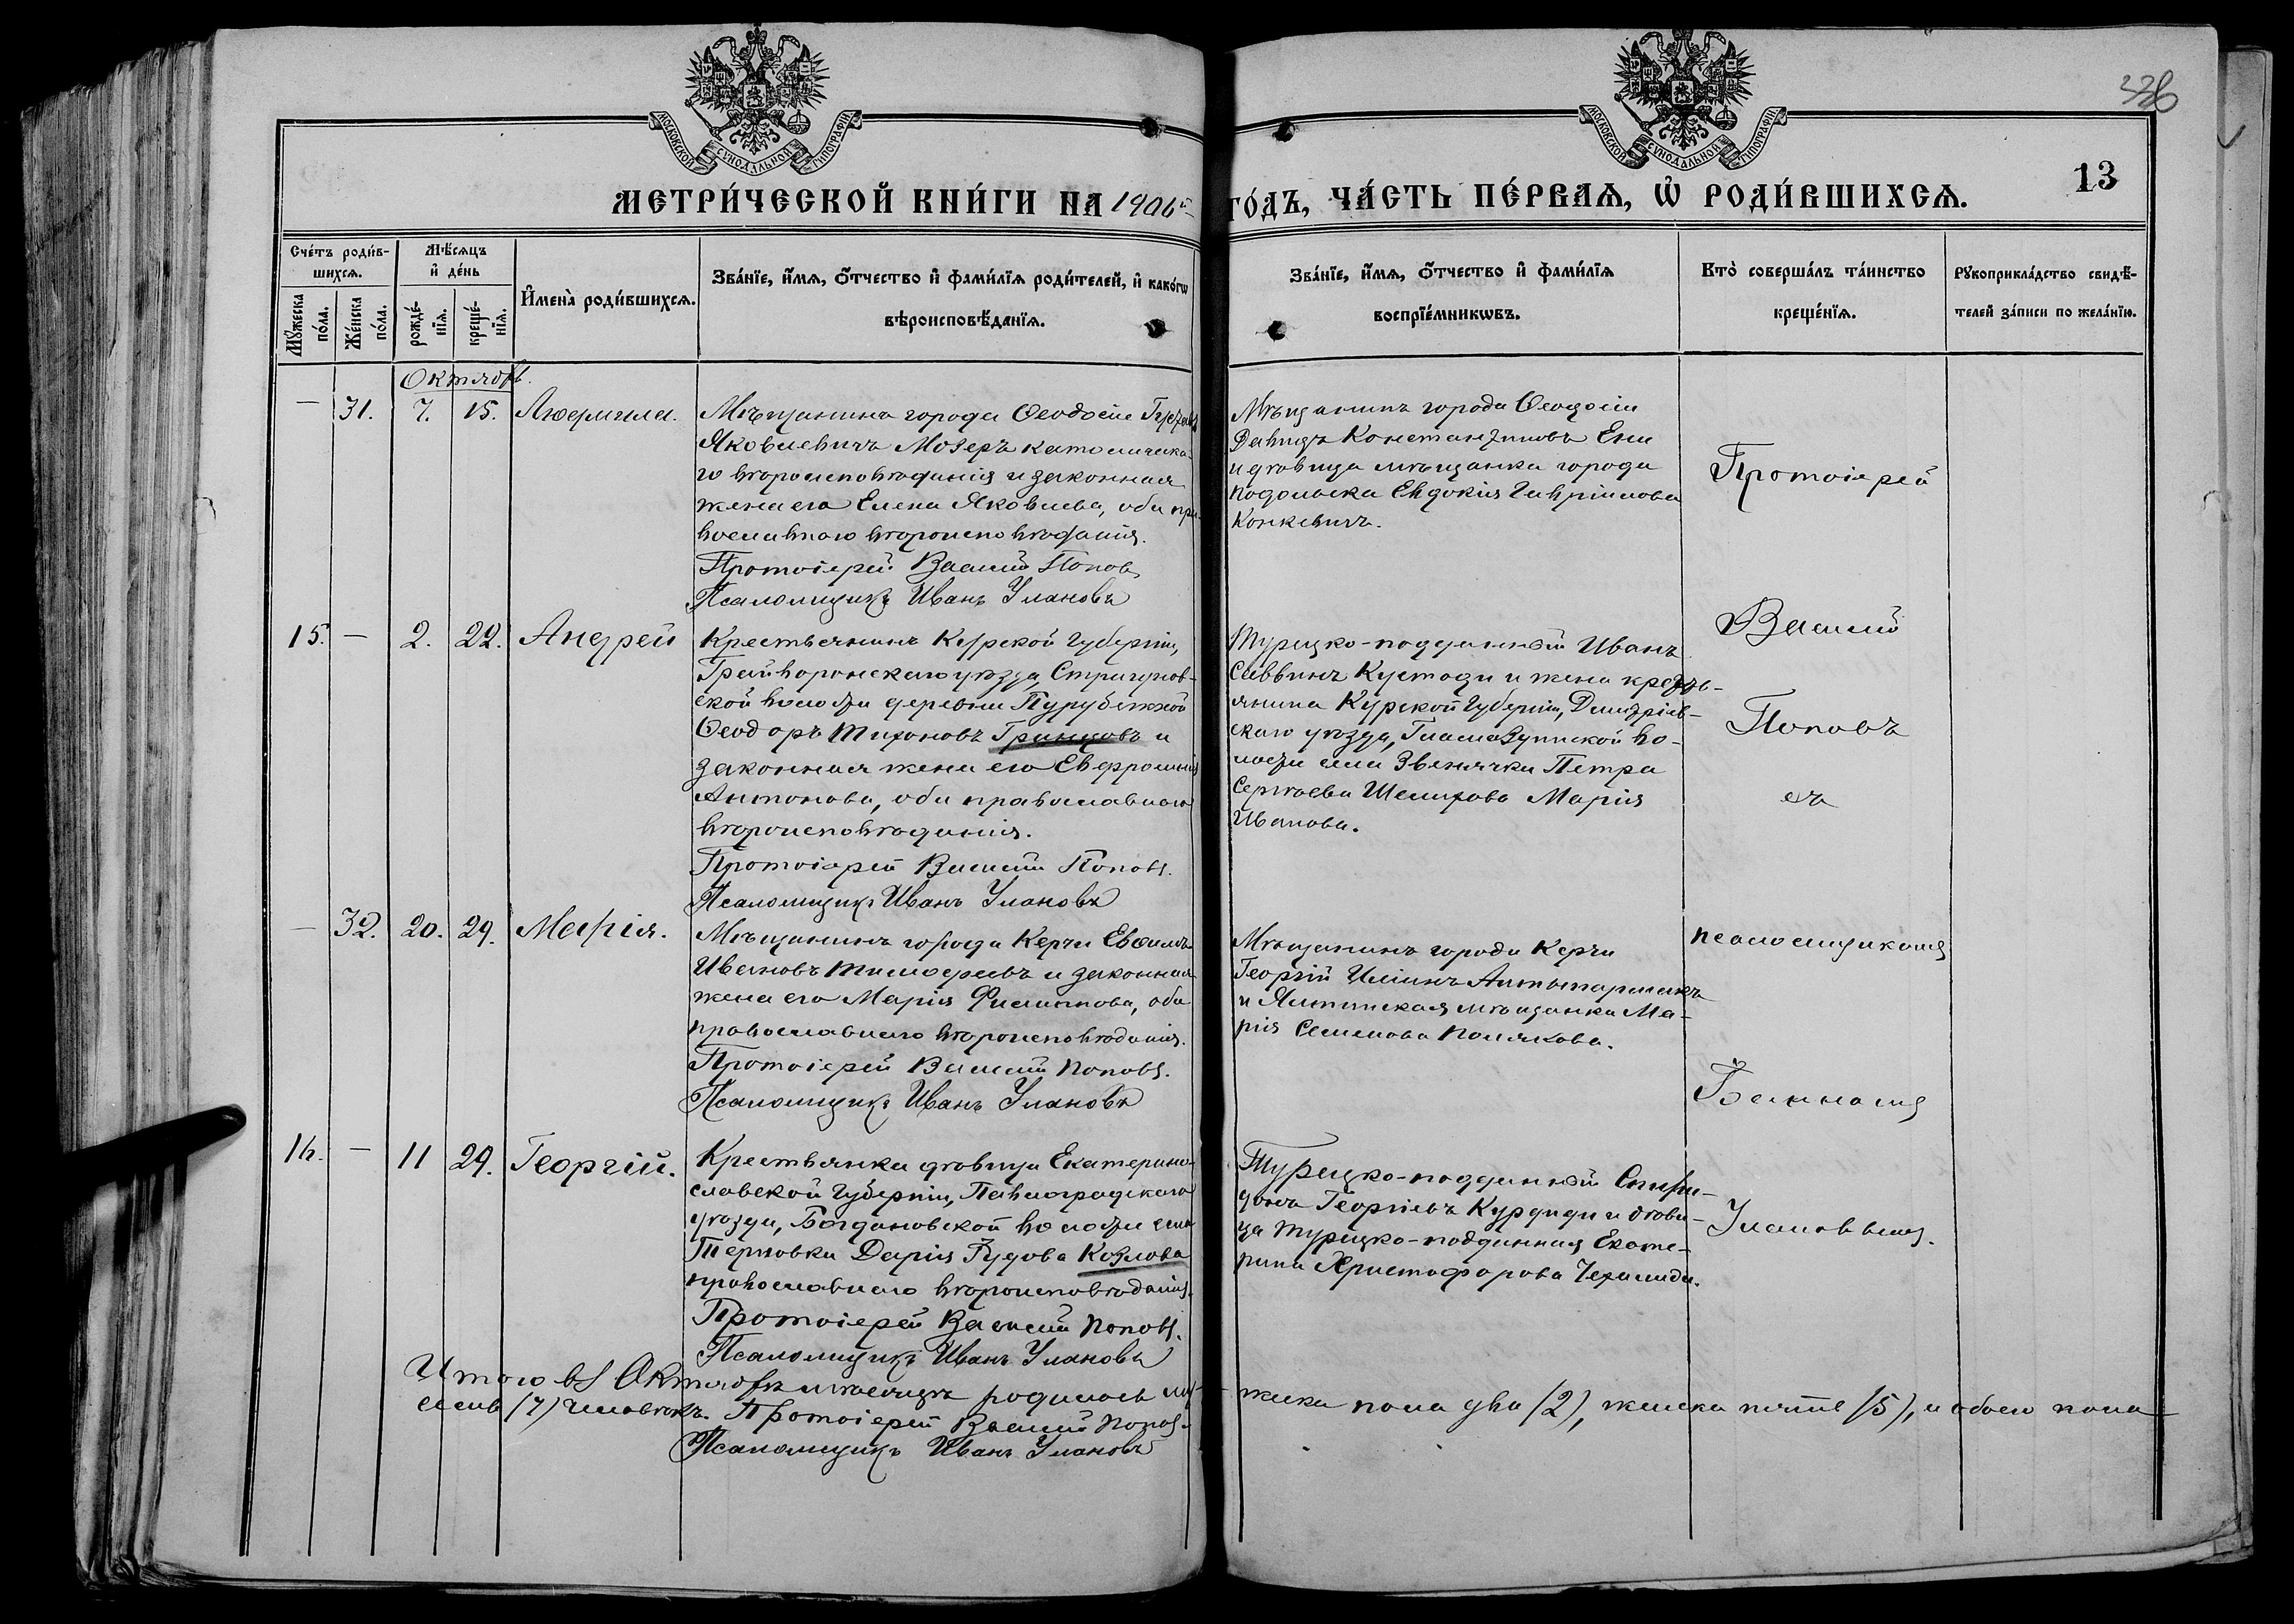 МОСКОВСКОЙ СѴНОДАЛЬНОЙ ТИПОГРАФІИ
МОСКОВСКОЙ СѴНОДАЛЬНОЙ ТИПОГРАФІИ
336
13
МЕТРИ́ЧЕСКОЙ КНИ́ГИ НА 1906й
ГО́ДЪ, ЧА́СТЬ ПЕ́РВАѦ, Ѡ҆ РОДИ́ВШИХСѦ.
Сче́тъ роди́в-
шихсѧ.
Мꙋ́жеска по́ла.
Же́нска по́ла.
Мѣ́сѧцъ
и҆ де́нь
рожде́-нїѧ.
креще́-нїѧ.
И҆мена̀ роди́вшихсѧ.
Зва́нїе, и҆́мѧ, ѻ҆́тчество и҆ фами́лїѧ роди́телей, и҆ како́гѡ
вѣроисповѣ́данїѧ.
Зва́нїе, и҆́мѧ, ѻ҆́тчество и҆ фами́лїѧ
воспрїе́мникѡвъ.
Кто̀ соверша́лъ та́инство
креще́нїѧ.
Рꙋкоприкла́дство свидѣ́-
телей за́писи по жела́нїю.
Октябрь.
— 31. 7. 15. Людмила.
Мѣщанинъ города Ѳеодосіи
Яковлевичъ Мозеръ католическа-
го вѣроисповѣданія и законная
жена его Елена Яковлева, оба пра-
вославнаго вѣроисповѣданія.
Протоіерей Василій Поповъ
Псаломщикъ Иванъ Улановъ
Мѣщанинъ города Ѳеодосіи
Давидъ Константиновъ Ени
и дѣвица мѣщанка города
Подольска Евдокія Гавріилова
Конкевичъ.
Протоіерей
15. — 2. 22. Андрей
Крестьянинъ Курской губерніи,
Грайворонскаго уѣзда, Стригунов-
ской волости деревни Пурубежной
Ѳеодоръ Тихоновъ Гринцовъ и
законная жена его Евфросинія
Антонова, оба православнаго
вѣроисповѣданія.
Протоіерей Василій Поповъ.
Псаломщикъ Иванъ Улановъ
Турецко-подданный Иванъ
Саввинъ Кустоди и жена кресть-
янина Курской губерніи, Дмитріев-
скаго уѣзда, во-
лости села Звенячки Петра
Сергѣева Шелихова Марія
Иванова.
Василій
Поповъ
съ
— 32. 20. 29. Марія.
Мѣщанинъ города Керчи Евѳимъ
Ивановъ Тимоѳеевъ и законная
жена его Марія Филиппова, оба
православнаго вѣроисповѣданія.
Протоіерей Василій Поповъ.
Псаломщикъ Иванъ Улановъ
Мѣщанинъ города Керчи
Георгій Ильинъ
и Ялтинская мѣщанка Ма-
рія Семенова Полякова.
псаломщикомъ
Іоанномъ
16. — 11 29. Георгій.
Крестьянка дѣвица Екатерино-
славской губерніи, Павлоградскаго
уѣзда, Богдановской волости села
Терновки Дарія Гудова Козлова
православнаго вѣроисповѣданія.
Протоіерей Василій Поповъ.
Псаломщикъ Иванъ Улановъ
Турецко-подданный Спири-
донъ Георгіевъ Курдиди и дѣви-
ца турецко-подданная Екате-
рина Христофорова
Улановымъ.
Итого въ Октябрѣ мѣсяцѣ родилось му-
жска пола два (2), женска пять (5), и обоего пола
семь (7) человѣкъ. Протоіерей Василій Поповъ
Псаломщикъ Иванъ Улановъ